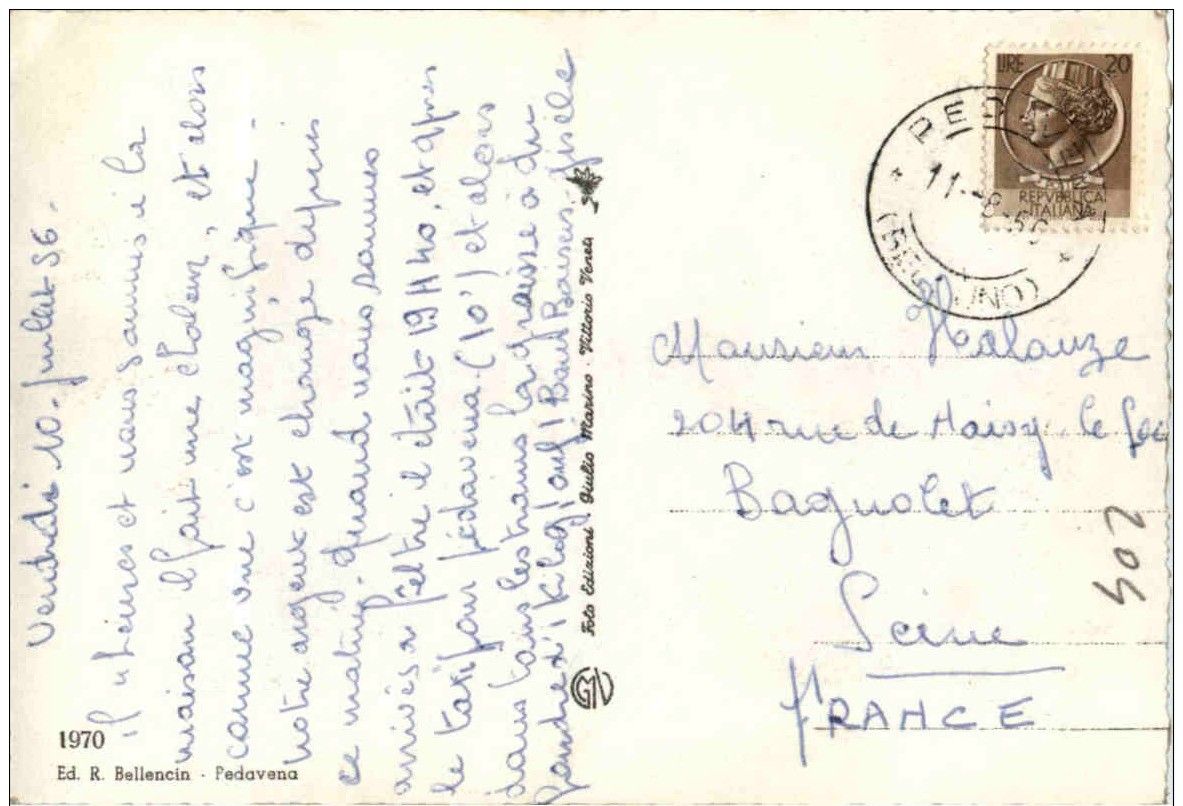 Vendredi 10 Juillet 56.
il 4 heures et nous sommes à la
maison il fait une chaleur, et alors
comme vue c'est magnifique.
notre argent est changé depuis
ce matin. quand nous sommes
arrivés a Feltre il était 19H40, et apres
le taxi pour Pédavena (10') et alors
dans tous les trains la graisse à du
fondre d'1 kilog! ouf! Bons Baisers. Gisèle
1970
Ed. R. Bellencin - Pedavena
Foto Edizioni - Giulio Marino - Vittorio Veneto
LIRE 20
REPVBBLICA
ITALIANA
11-8-56
(BELLUNO)
Monsieur Halauze
204 rue de Noisy le Sec
Bagnolet
Seine
FRANCE
502